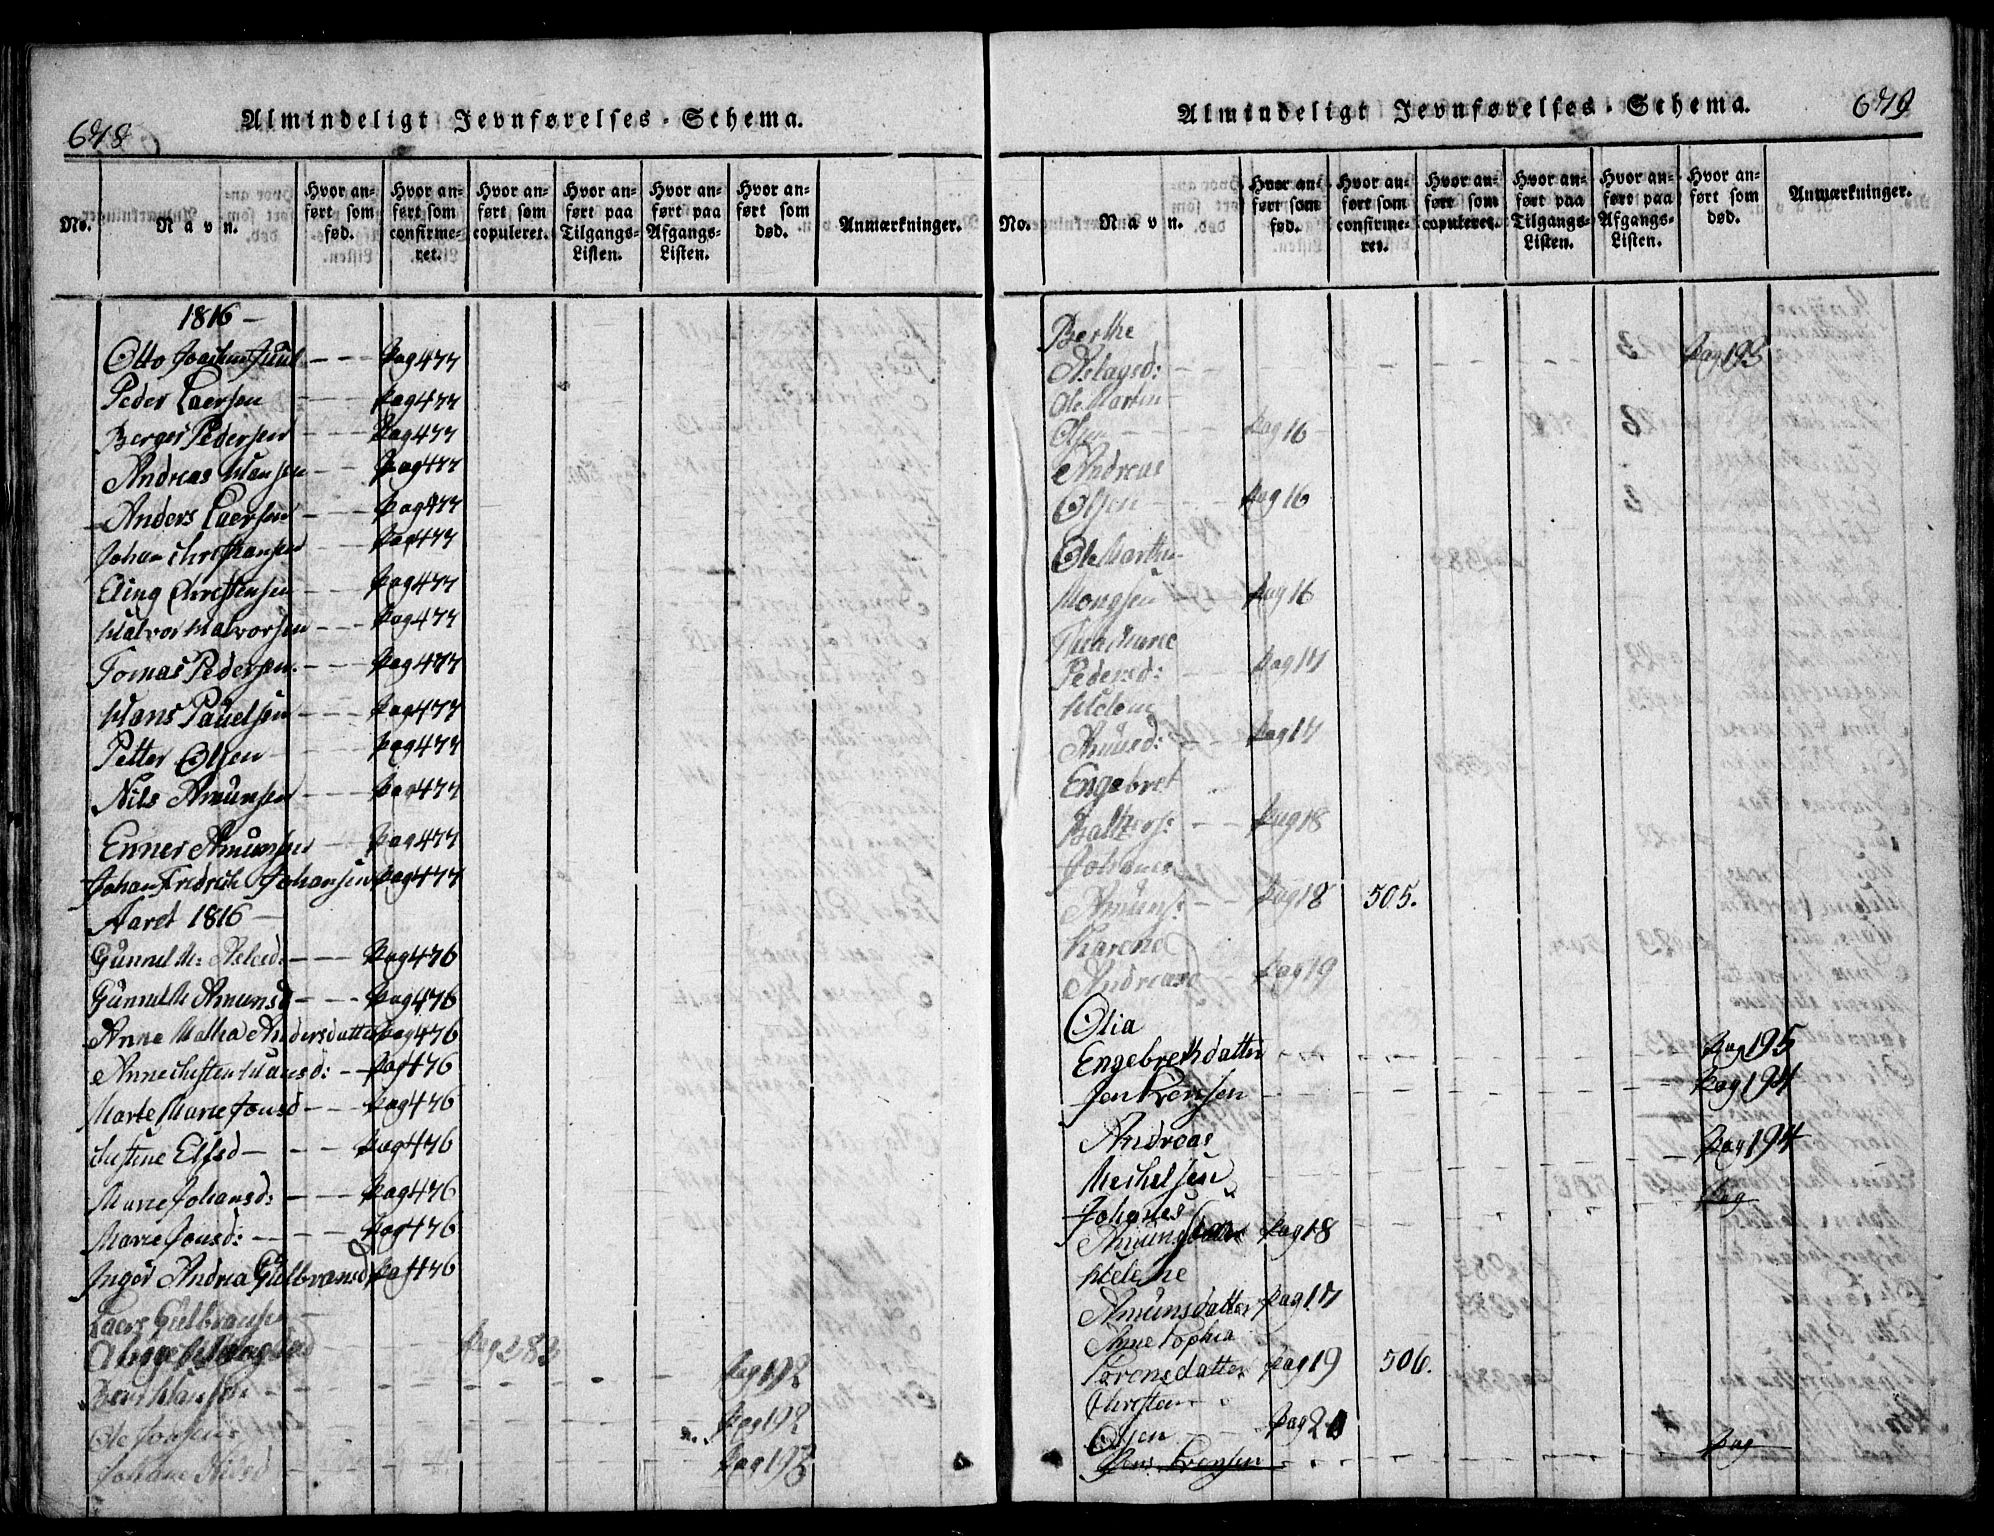 678
Almindeligt Jevnførelses-Schema.
No.
Navn.
Hvor anført som fød.
Hvor anført som confirmeret.
Hvor anført som copuleret.
Hvor anført paa Tilgangs-Listen.
Hvor anført paa Afgangs-Listen.
Hvor anført som død.
Anmærkninger.
1816 —
Otto Joachim Juul — — — Pag 477
Peder Laersen — — — Pag 477
Berger Pedersen — — — Pag 477
Andreas Hansen Pag 477
Anders Laersen — — — Pag 477
Johan Christiansen — — Pag 477
Eling Christensen — — Pag 477
Halvor Halvorsen — — Pag 477
Tomas Pedersen — — — Pag 477
Hans Pauelsen — — — Pag 477
Petter Olsen — — — Pag 477
Nils Amunsen — — — Pag 477
Enner Amunsen — Pag 477
Johan Fredrich Johansen Pag 477
Aaret 1816 —
Gunnel M: — — — Pag 476
Gunnel M Amunsd — — — Pag 476
Anne Mathea Andersdatter Pag 476
Anne Hansd: — Pag 476
Marte Marie Jonsd — — Pag 476
Elfsd — — — Pag 476
Marie Johansd: — — — Pag 476
Marie Jonsd: — — — Pag 476
Inger Andrea Gulbransd Pag 476
Laers Gulbransen
Pag 283
Hansen — — — Pag 192
Ole Jonsen — — — Pag 192
Johane Nilsd — — — Pag 193
679
Almindeligt Jevnførelses-Schema.
No.
Navn.
Hvor anført som fød.
Hvor anført som confirmeret.
Hvor anført som copuleret.
Hvor anført paa Tilgangs-Listen.
Hvor anført paa Afgangs-Listen.
Hvor anført som død.
Anmærkninger.
Berthe
Aslagsd: — — — Pag 195
Ole Martin
Olsen — — — Pag 16
Andreas
Olsen — — — Pag 16
Ole Marthin
Mongsen Pag 16
Thea Marie
Pedersd: — — Pag 17
Helene
Amusd: — — Pag 17
Engebret
Balthers: — — Pag 18
Johannes
Amuns: Pag 18 505.
Karen
Andreasd Pag 19
Olia
Engebrethdatter — — — Pag 195
Jon — — — Pag 194
Andreas
Mechelsen — — — Pag 194
Johanes
Pag
Pag 18
Helene
Amunsdatter Pag 17
Anne Sophia
Sorensdatter Pag 19 506.
Christen
Olsen Pag 20
Jens Sorensen — — — Pag